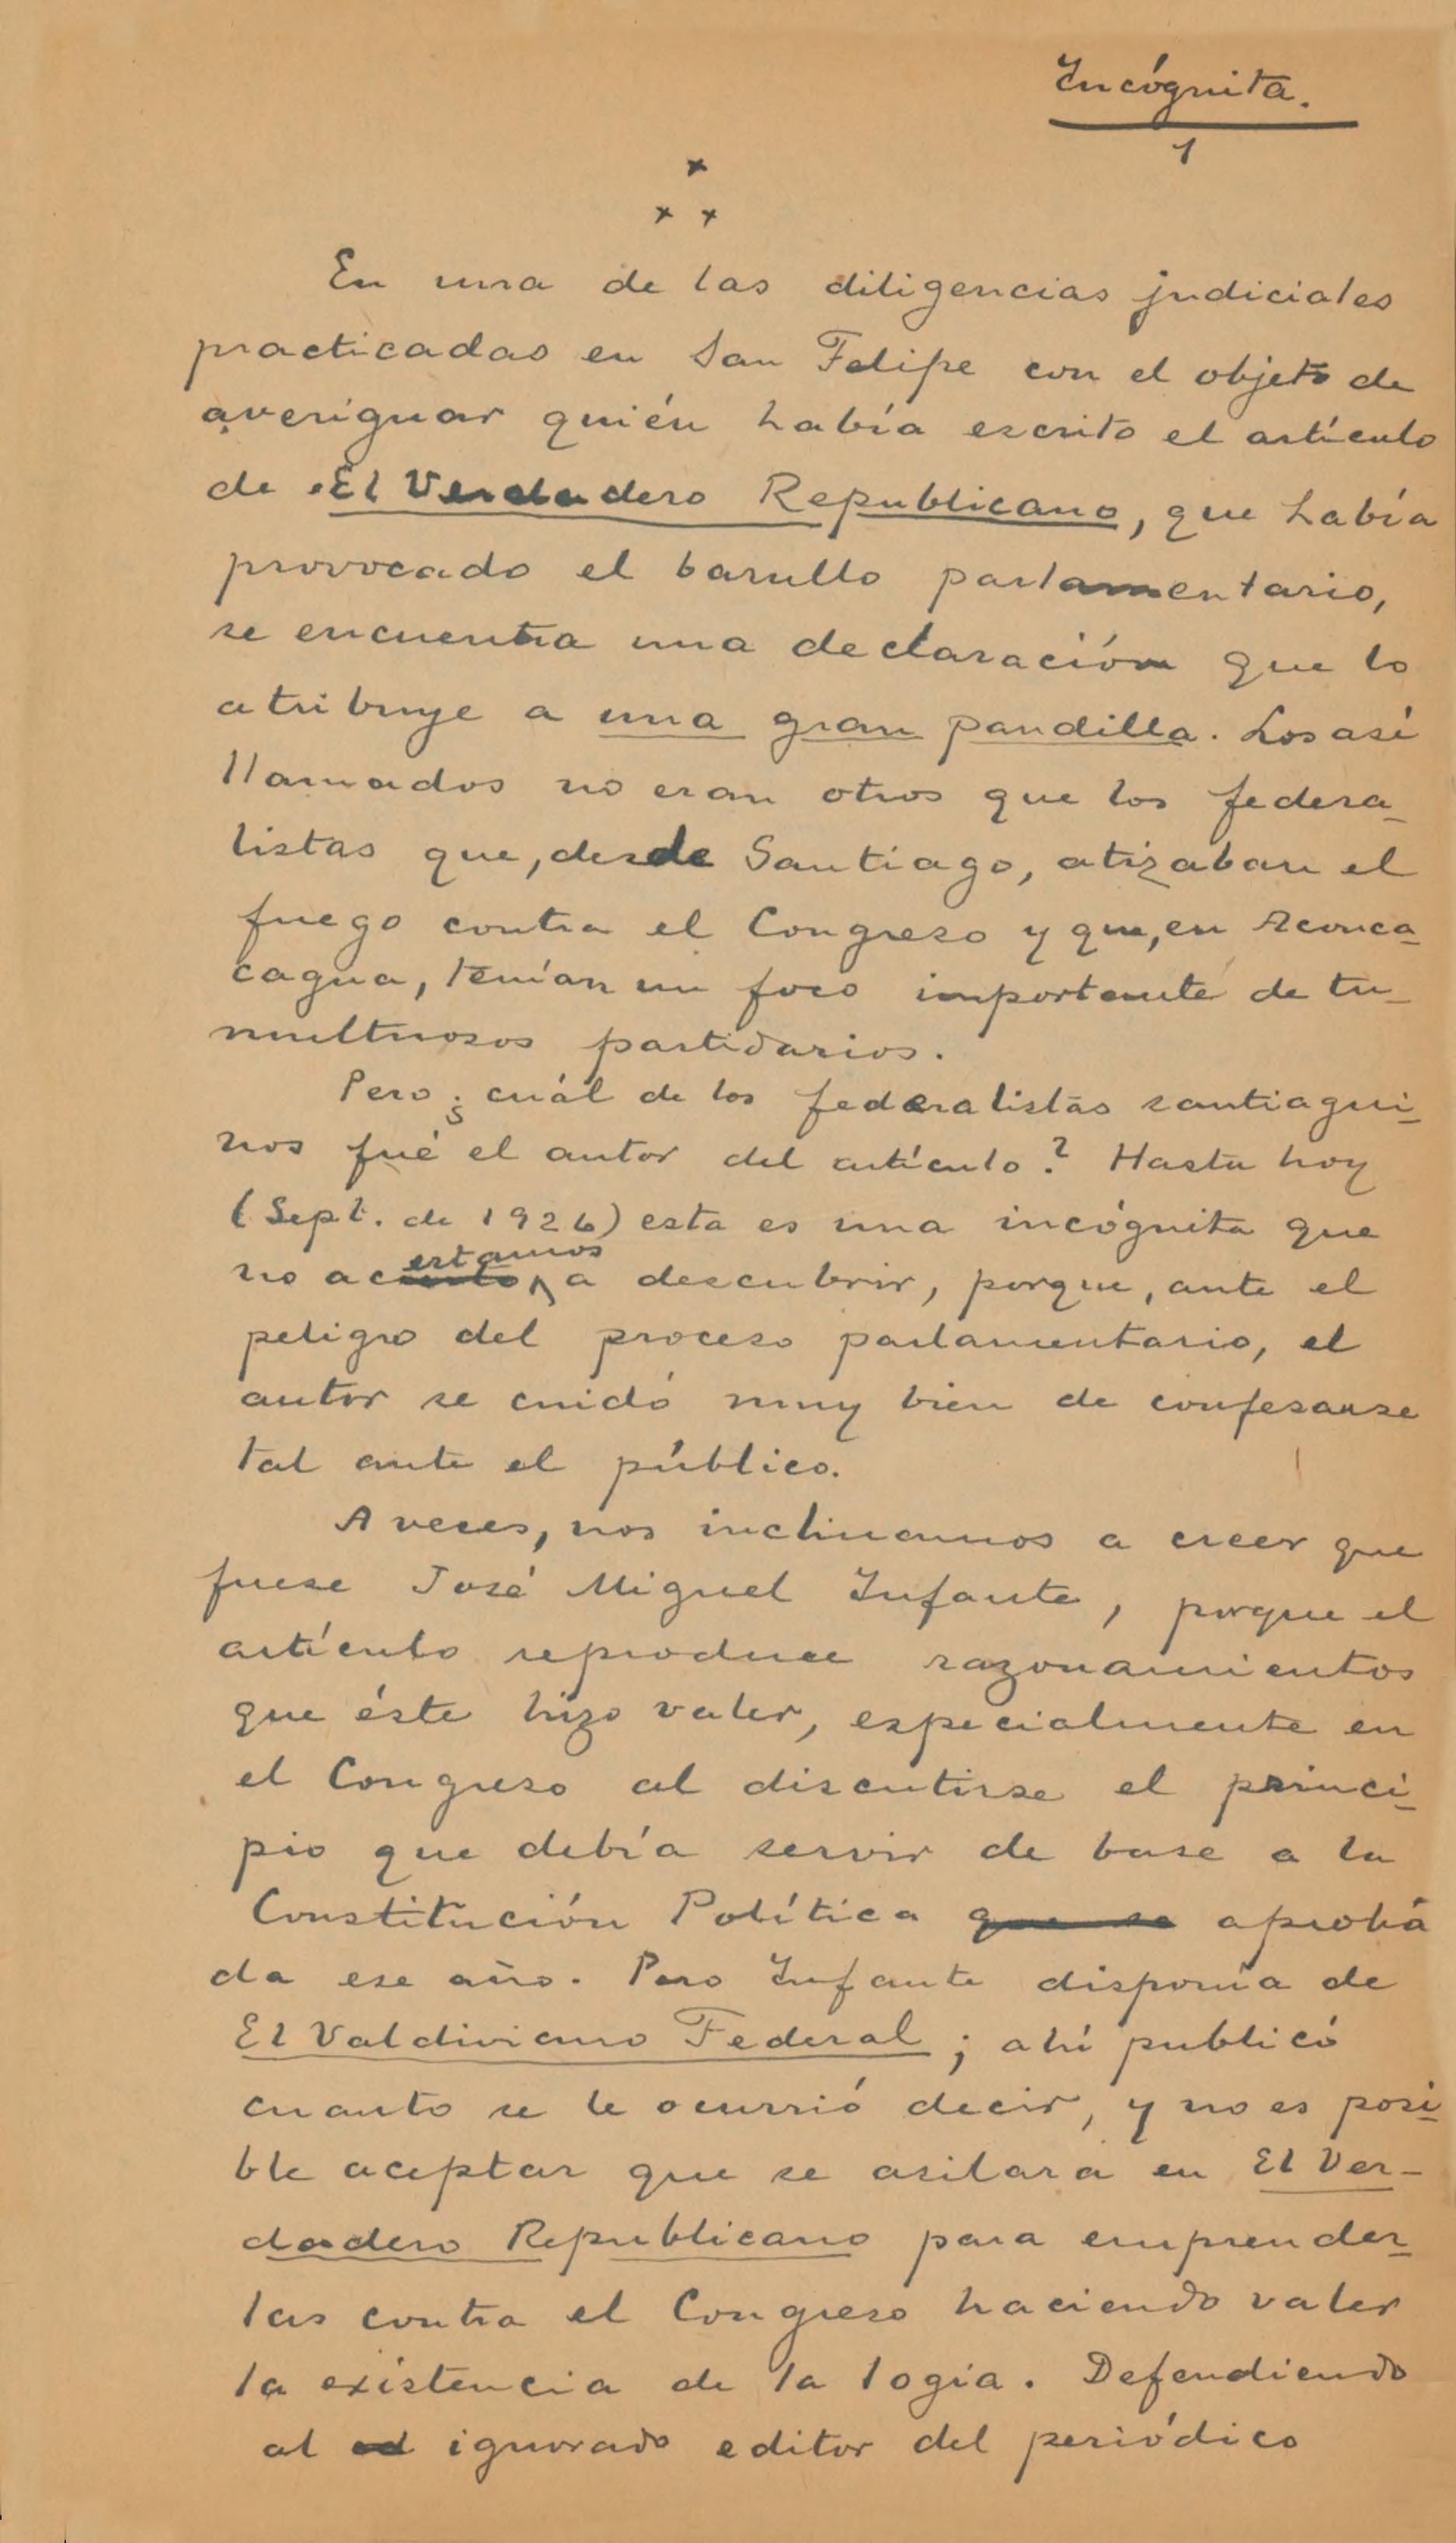 Incógnita.
1
x
x x
En una de las diligencias judiciales
practicadas en San Felipe con el objeto de
averiguar quién había escrito el artículo
de El Verdadero Republicano, que había
provocado el barullo parlamentario,
se encuentra una declaración que lo
atribuye a una gran pandilla. Los así
llamados no eran otros que los federa-
listas que, desde Santiago, atizaban el
fuego contra el Congreso y que, en Aconca
cagua, tenían un foco importante de tu-
multuosos partidarios.
Pero ¿cuál de los federalistas santiagui-
nos fué el autor del artículo? Hasta hoy
(Sept. de 1926) esta es una incógnita que
estamos
no acierto, a descubrir, porque, ante el
peligro del proceso parlamentario, el
autor se cuidó muy bien de confesarse
tal ante el público.
A veces, nos inclinamos a creer que
fuese José Miguel Infante, porque el
artículo reproduce razonamientos
que éste hizo valer, especialmente en
el Congreso al discutirse el princi-
pio que debía servir de base a la
Constitución Política que se aproba
da ese año. Pero Infante disponía de
El Valdiviano Federal; ahí publicó
cuanto se le ocurrió decir, y no es posi-
ble aceptar que se asilara en El Ver-
dadero Republicano para emprender-
las contra el Congreso haciendo valer
la existencia de la logia. Defendiendo
al ed ignorado editor del periódico